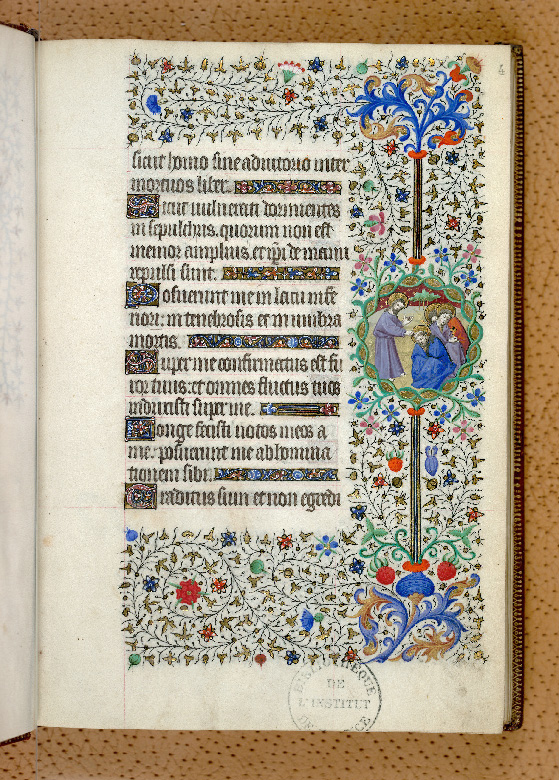 4
sicut homo sine adiutorio inter
mortuos liber.
Sicut uulnerati dormientes
in sepulchris, quorum non est
memor amplius, et ipi de manu
repulsi sunt.
Posuerunt me in lacu infe
riori: in tenebrosis et in umbra
mortis.
Super me confirmatus est fu
ror tuus: et omnes fluctus tuos
induxisti super me.
Longe fecisti notos meos a
me: posuerunt me abhomina
tionem sibi.
Traditus sum et non egredi
BIBLIOTHEQUE
DE
L'INSTITUT
DE FRANCE